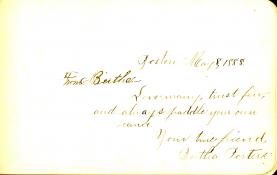 Boston May 8, 1888.
Friend Bertha
Love many, trust few,
and always paddle your own
canoe.
Your true friend,
Bertha Porter.